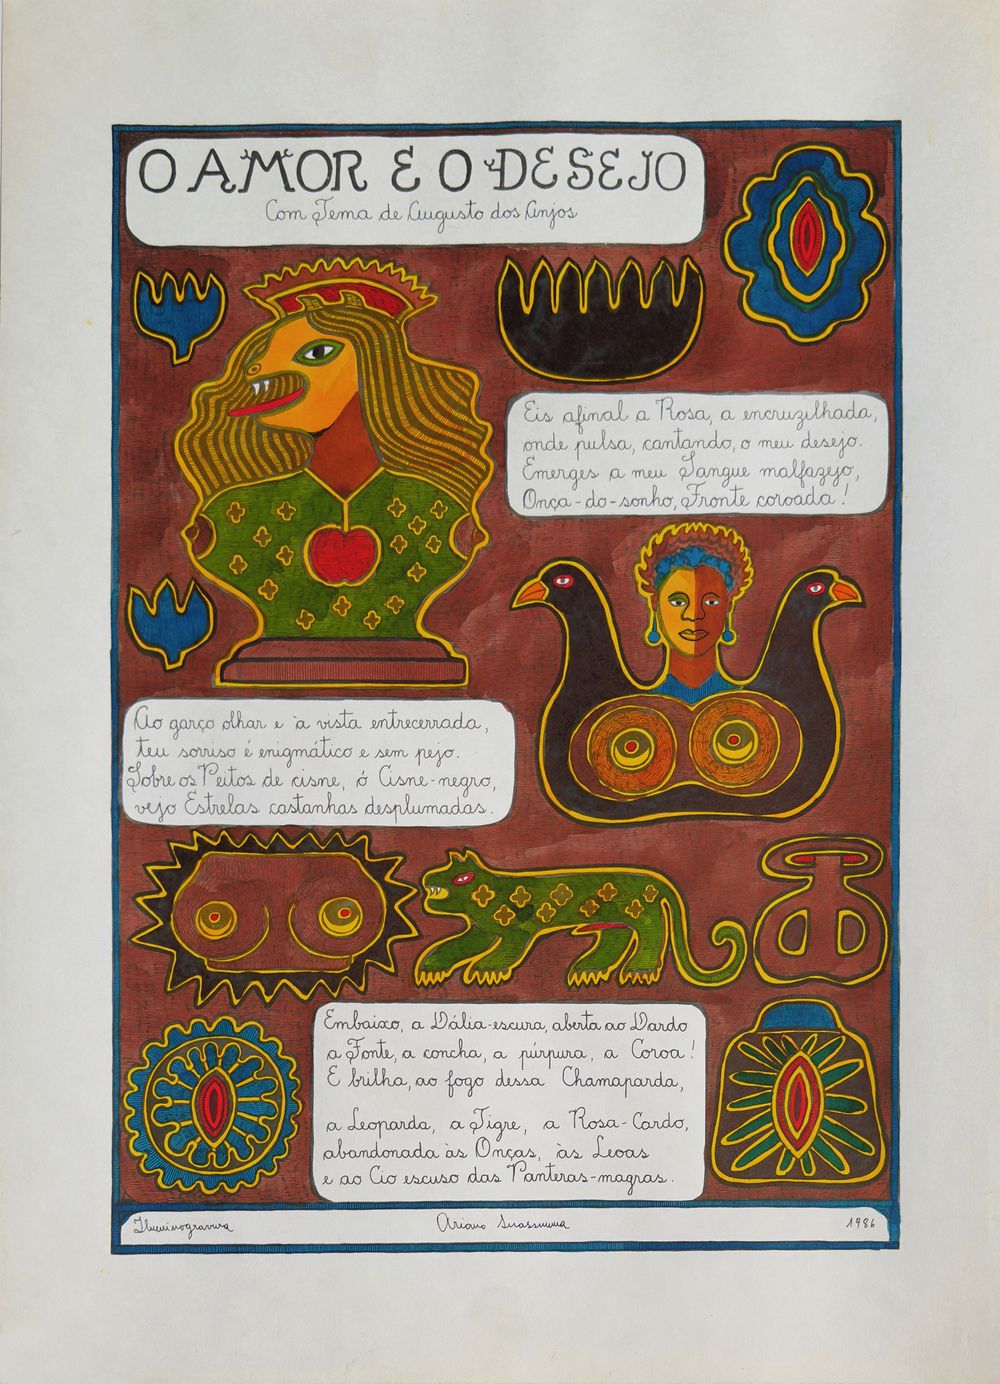 O AMOR E O DESEJO
Com Tema de Augusto dos Anjos
Eis afinal a Rosa, a encruzilhada,
onde pulsa, cantando, o meu desejo.
Emerges a meu Sangue malfazejo,
Onça-do-sonho, Fronte coroada!
Ao garço olhar e à vista entrecerrada,
teu sorriso é enigmático e sem pejo.
Sobre os Peitos de cisne, ó Cisne-negro,
vejo Estrelas castanhas desplumadas.
Embaixo, a Dália-escura, aberta ao Dardo
a Fonte, a concha, a púrpura, a Coroa!
E brilha, ao fogo dessa Chamaparda,
a Leoparda, a Tigre, a Rosa-Cardo,
abandonada às Onças, às Leoas
e ao Cio escuso das Panteras-magras.
Iluminogravura Ariano Suassuna 1986